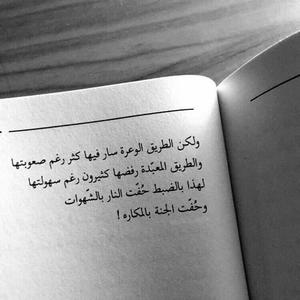 ولكن الطريق الوعرة سار فيها كثر رغم صعوبتها
والطريق المعبّدة رفضها كثيرون رغم سهولتها
لهذا بالضبط حُفّت النار بالشّهوات
وحُفّت الجنة بالمكاره !